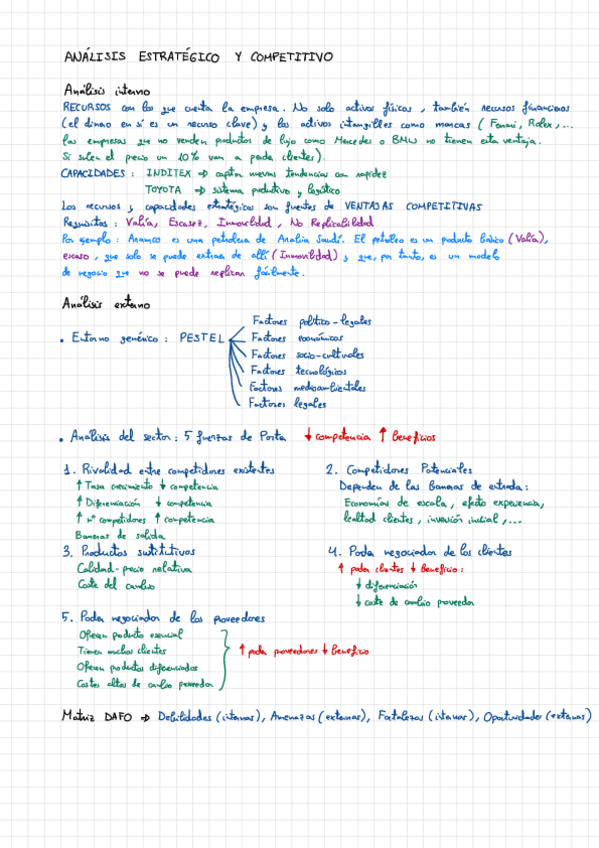 ANÁLISIS ESTRATÉGICO Y COMPETITIVO
Análisis interno
RECURSOS con los que cuenta la empresa. No solo activos físicos, también recursos financieros
(el dinero en sí es un recurso clave) y los activos intangibles como marcas (Ferrari, Rolex,...
las empresas que no venden productos de lujo como Mercedes o BMW no tienen esta ventaja.
Si suben el precio un 10% van a perder clientes).
CAPACIDADES: INDITEX ⇒ captar nuevas tendencias con rapidez
TOYOTA ⇒ sistema productivo y logístico
Los recursos y capacidades estratégicos son fuentes de VENTAJAS COMPETITIVAS
Requisitos: Valía, Escasez, Inmovilidad, No Replicabilidad
Por ejemplo: Aramco es una petrolera de Arabia Saudí. El petróleo es un producto básico (Valía),
escaso, que solo se puede extraer de allí (Inmovilidad) y que, por tanto, es un modelo
de negocio que no se puede replicar fácilmente.
Análisis externo
• Entorno genérico: PESTEL
Factores político-legales
Factores económicos
Factores socio-culturales
Factores tecnológicos
Factores medioambientales
Factores legales
• Análisis del sector: 5 fuerzas de Porter ↓ competencia ↑ beneficios
1. Rivalidad entre competidores existentes
↑ Tasa crecimiento ↓ competencia
↑ Diferenciación ↓ competencia
↑ nº competidores ↑ competencia
Barreras de salida
2. Competidores Potenciales
Dependen de las barreras de entrada:
Economías de escala, efecto experiencia,
lealtad clientes, inversión inicial,...
3. Productos sustitutivos
Calidad-precio relativa
Coste del cambio
4. Poder negociador de los clientes
↑ poder clientes ↓ beneficio:
↓ diferenciación
↓ coste de cambio proveedor
5. Poder negociador de los proveedores
Ofrecen producto esencial
Tienen muchos clientes
Ofrecen productos diferenciados
Costes altos de cambio proveedor
↑ poder proveedores ↓ beneficio
Matriz DAFO ⇒ Debilidades (internas), Amenazas (externas), Fortalezas (internas), Oportunidades (externas)